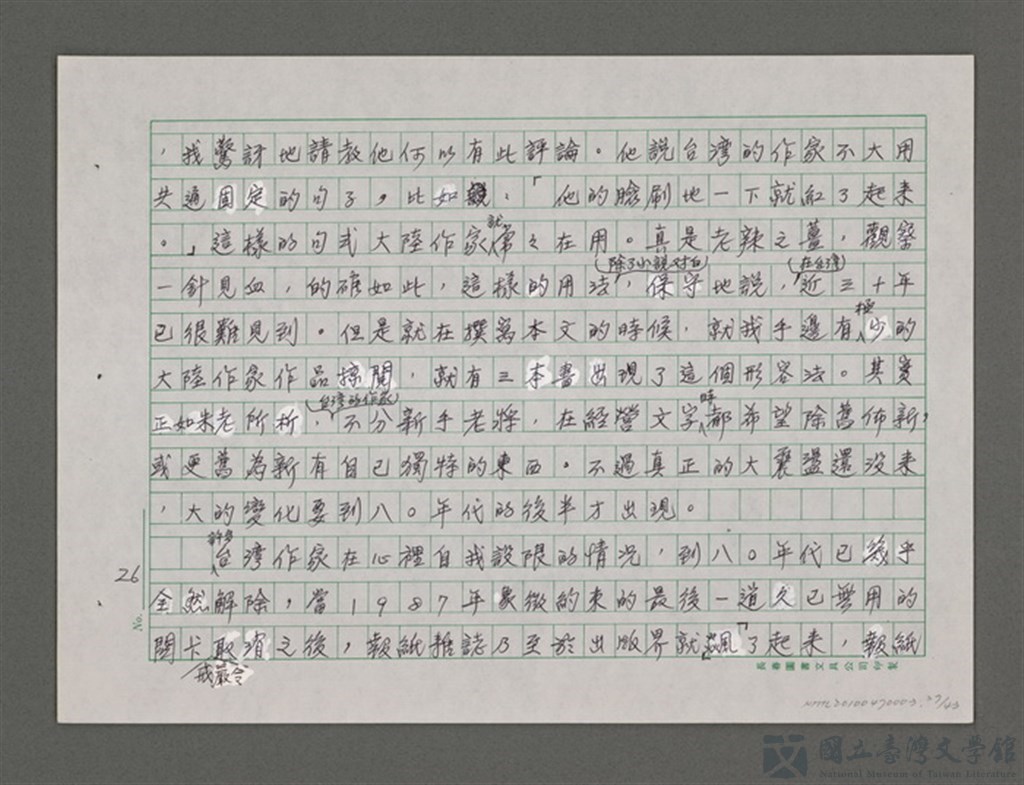 ，我驚訝地請教他何以有此評論。他說台湾的作家不大用
共通固定的句子，比如，「他的臉刷地一下就紅了起来
。」這樣的句式大陸作家就常々在用。真是老辣之薑，觀察
一針見血，的確如此，這樣的用法(除了小說对白)，保守地說，(在台湾)近三十年
已很難見到。但是就在撰寫本文的時候，就我手邊有極少的
大陸作家作品擦閱，就有三本書出現了這個形容法。其實
正如朱老所析，(台湾的作家)不分新手老將，在經營文字時都希望除舊佈新，
或更舊為新有自己獨特的東西。不過真正的大震盪還没来
，大的變化要到八〇年代的後半才出現。
許多台湾作家在心裡自我設限的情況，到八〇年代已幾乎
全然解除，當1987年象徵約束的最後一道久已無用的
關卡戒嚴令取消之後，報紙雜誌乃至於出版界就「飆」了起来，報紙
26
No.
長春圖書文具公司印製
NMTL20100470003.27/43
國立臺灣文學館
National Museum of Taiwan Literature